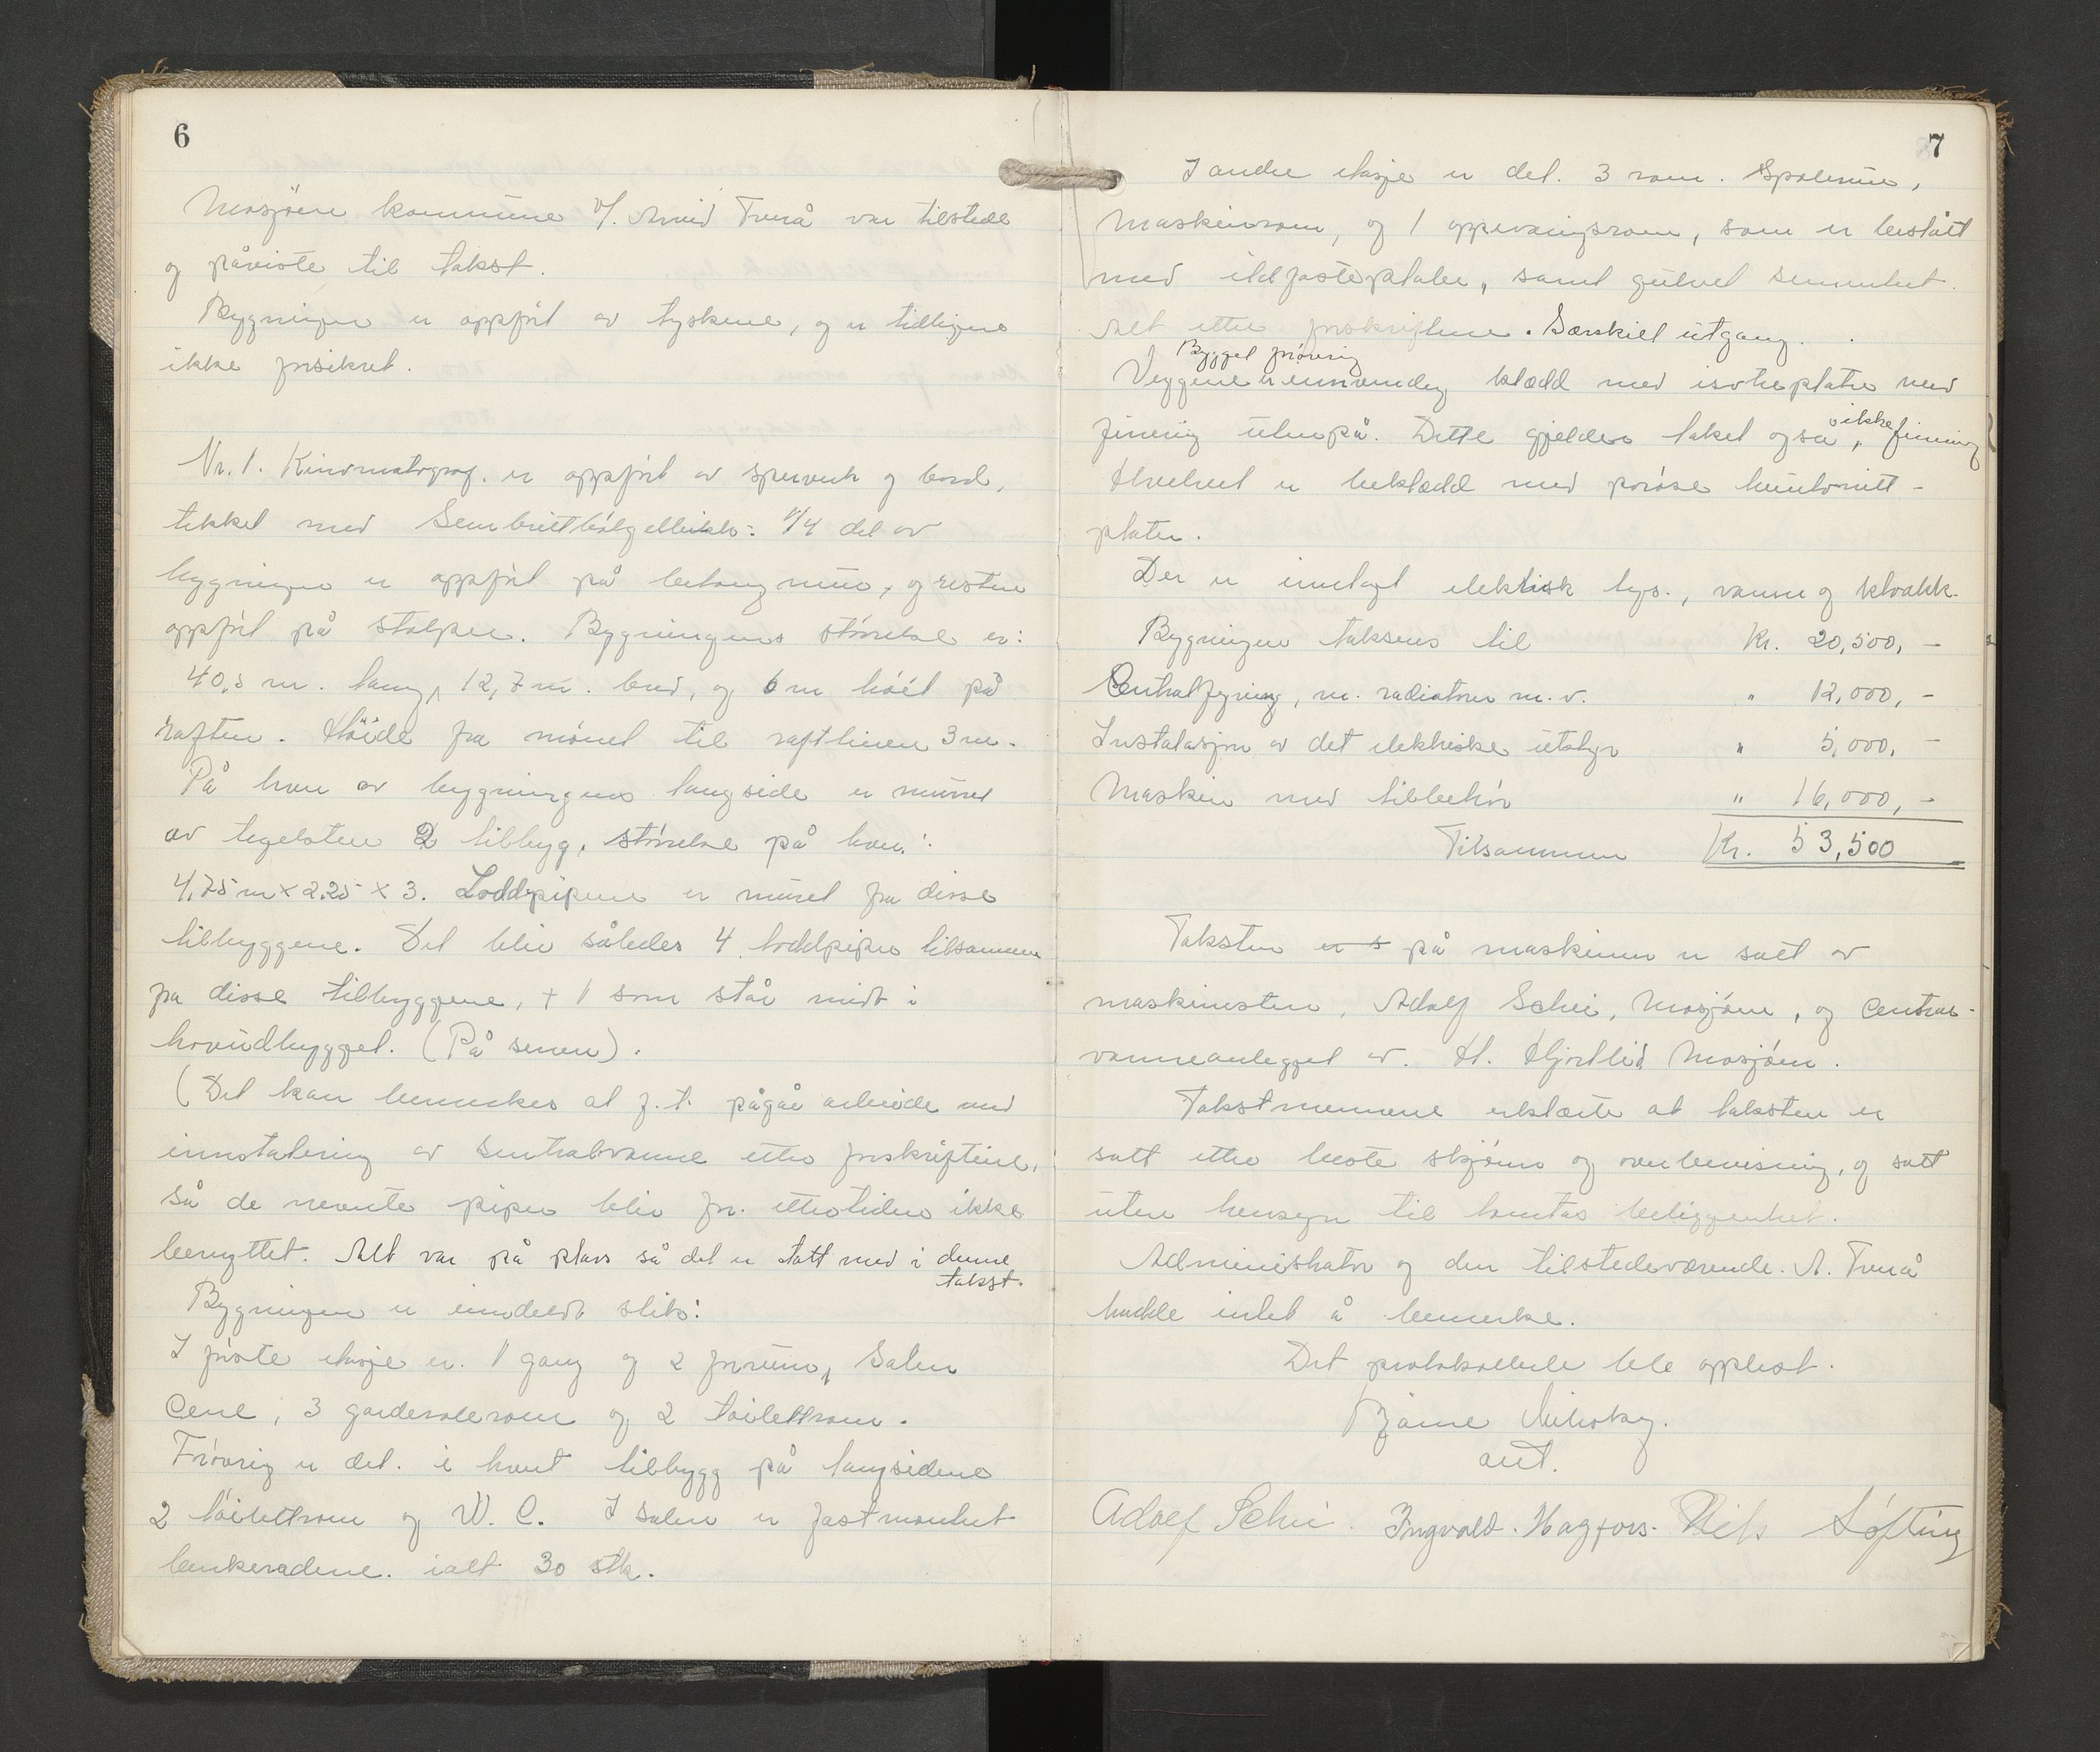 6
Mosjöen kommune v/. Arvid Trerå var tilstede
og påviste til takst.
Bygningen er oppfört av tyskerne, og er tidligere
ikke forsikret.
Nr. 1. Kinomatograf. er oppfört av sperverk og bord,
tekket med Sembrittbölgeblikk: 1/4 del av
bygningen er oppfört på betong mur, og resten
oppfört på stolper. Bygningens störrelse er:
40,5 m. lang, 12,7 m. bred, og 6 m höit på
raften. Höide fra mönet til raftlinen 3 m.
På hver av bygningens langside er muret
av tegelsten 2 tilbygg, störrelse på hver:
4,75 m x 2,25 x 3. Loddpipene er muret fra disse
tilbyggene. Det blir således 4 loddpiper tilsammen
fra disse tilbyggene, + 1 som står midt i
hovudbygget. (På senen).
(Det kan bemerkes at f. t. pågår arbeide med
innstalering av sentralvarme etter forskriftene,
så de nevnte piper blir for ettertiden ikke
benyttet. Alt var på plass så det er tatt med i denne
takst.
Bygningen er inndeldt slik:
I förste etasje er. 1 gang og 2 forrum, Salen
Cene, 3 garderoberom og 2 toilettrom.
Frövrig er det. i hvert tilbygg på langsidene
2 töilettrom og W. C. I salen er fastmontert
benkeradene. ialt 30 stk.
7
I andre etasje er det. 3 rom. Spolerum,
Maskinrom, og 1 oppvaringsrom, som er beslått
med ildfasteplater, samt gulvet sementert.
Alt etter forskriftene. Særskilt utgang.
Bygget förövrig
Veggene er innvendig klædd med isotreplater med
finering utenpå. Dette gjelder taket også, ikke finering
Hvelvet er beklædd med poröse huntonitt-
plater.
Der er innlagt elektrisk lys., vann og kloakk.
Bygningen takseres til Kr. 20,500,-
Centralfyring, m. radiatorer m. v. " 12,000,-
Instalasjon av det elektriske utstyr " 5,000,-
Maskin med tilbehör " 16,000,-
Tilsammen Kr. 53,500
Taksten er s på maskinen er satt av
maskinisten, Adolf Schei, Mosjöen, og central-
varmeanlegget av. H. Hjortlid Mosjöen.
Takstmennene erklærte at taksten er
satt etter beste skjönn og overbevisning, og satt
uten hensyn til tomtas beliggenhet.
Administrator og den tilstedeværende. A. Trerå
hadde intet å bemerke.
Det protokollerte ble opplest.
Bjarne
aut.
Adolf Schei. Ingvald. Hagfors. Nils Löfting